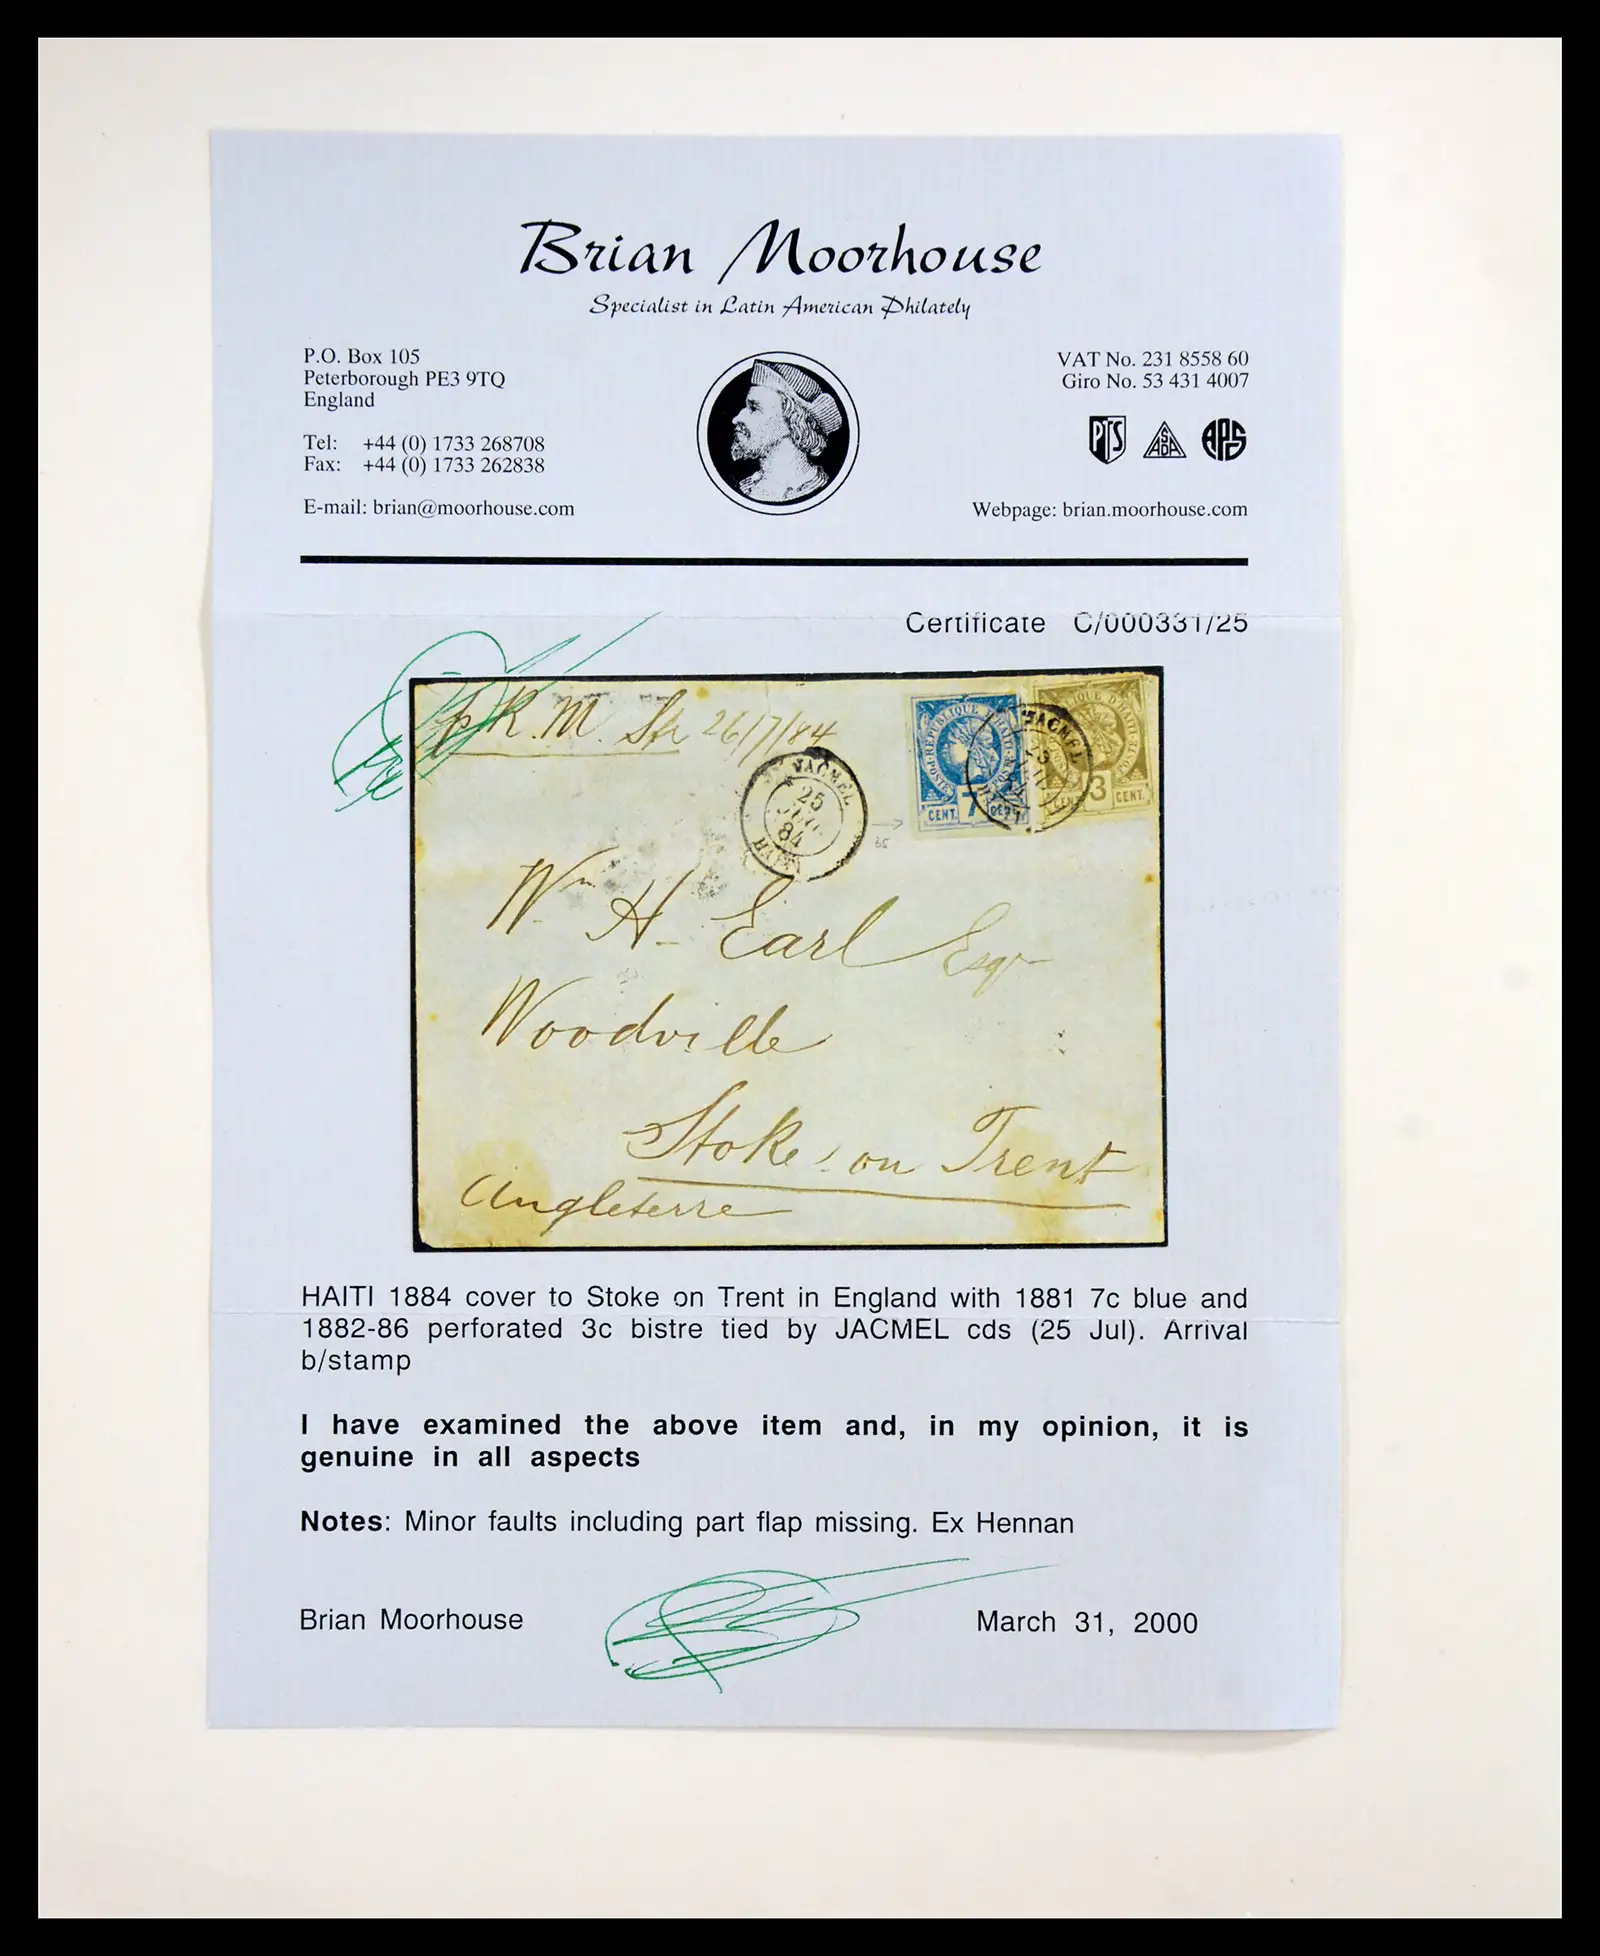 Brian Moorhouse
Specialist in Latin American Philately
P.O. Box 105
Peterborough PE3 9TQ
England
Tel: +44 (0) 1733 268708
Fax: +44 (0) 1733 262838
E-mail: brian@moorhouse.com
VAT No. 231 8558 60
Giro No. 53 431 4007
PTS ASDA APS
Webpage: brian.moorhouse.com
Certificate C/000331/25
p R. M. Str 26/7/84
JACMEL
25
84
HAITI
REPUBLIQUE D'HAITI
POSTE
CENT. 7 CENT.
JACMEL
REPUBLIQUE D'HAITI
CENT. 3 CENT.
35
Wm H. Earl Esqr
Woodville
Stoke on Trent
Angleterre
HAITI 1884 cover to Stoke on Trent in England with 1881 7c blue and
1882-86 perforated 3c bistre tied by JACMEL cds (25 Jul). Arrival
b/stamp
I have examined the above item and, in my opinion, it is
genuine in all aspects
Notes: Minor faults including part flap missing. Ex Hennan
Brian Moorhouse
March 31, 2000